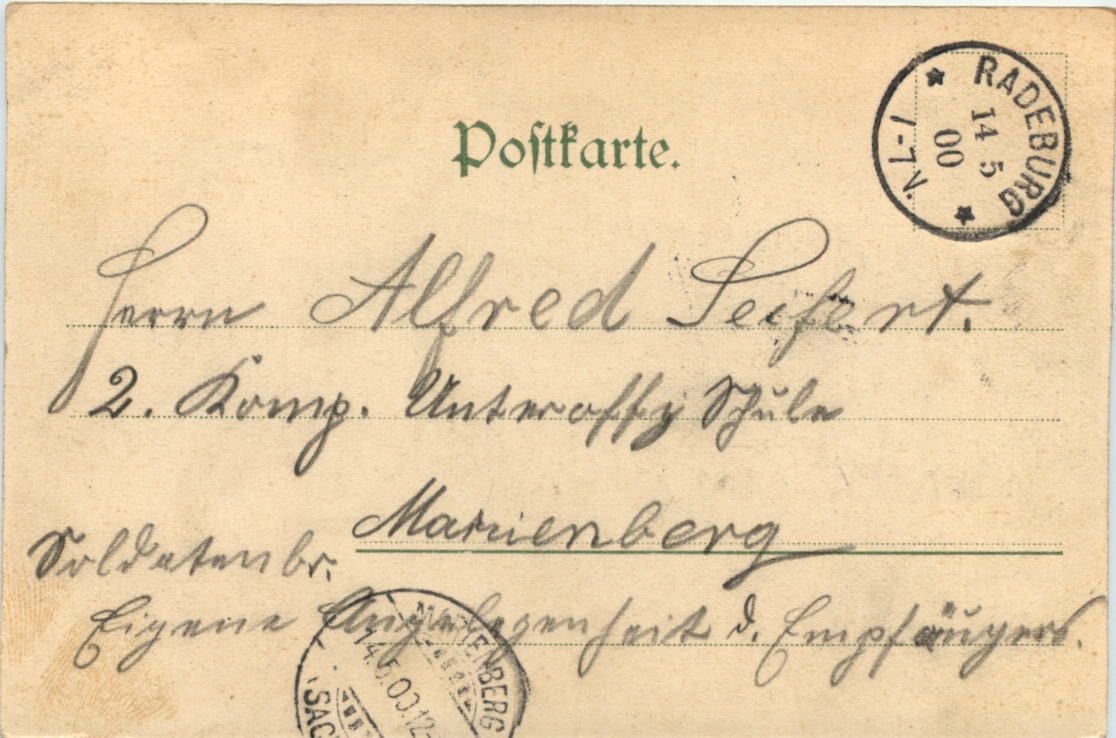 Postkarte.
RADEBURG
14 5
00
7-7 V.
Herrn Alfred Seifert.
2. Komp. Unteroffz Schule
Marienberg
Soldatenbr.
Eigene Angelegenheit d. Empfängers.
MARIENBERG
14.5.00.12-
SACH